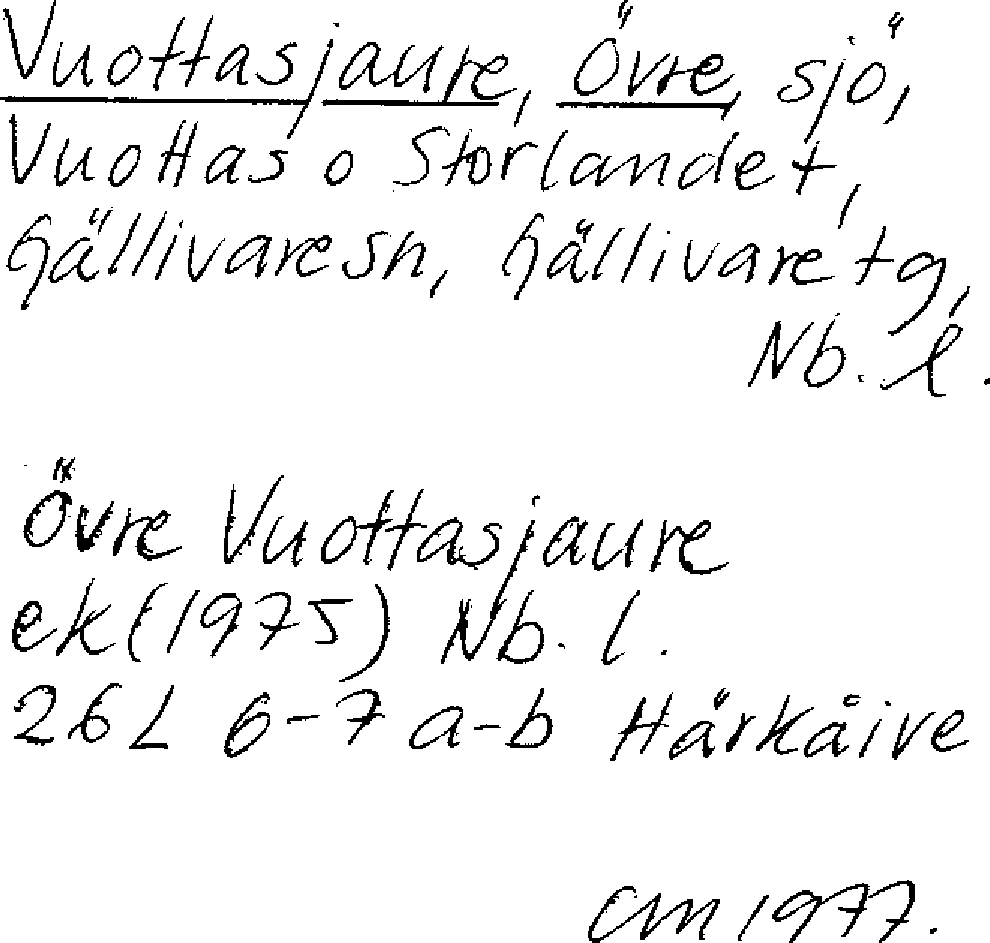 Vuottasjaure, Övre, sjö,
Vuottas o Storlandet,
Gällivare sn, Gällivare tg,
Nb. l.
Övre Vuottasjaure
ek (1975) Nb. l.
26L 6-7 a-b Härkåive
CM 1977.